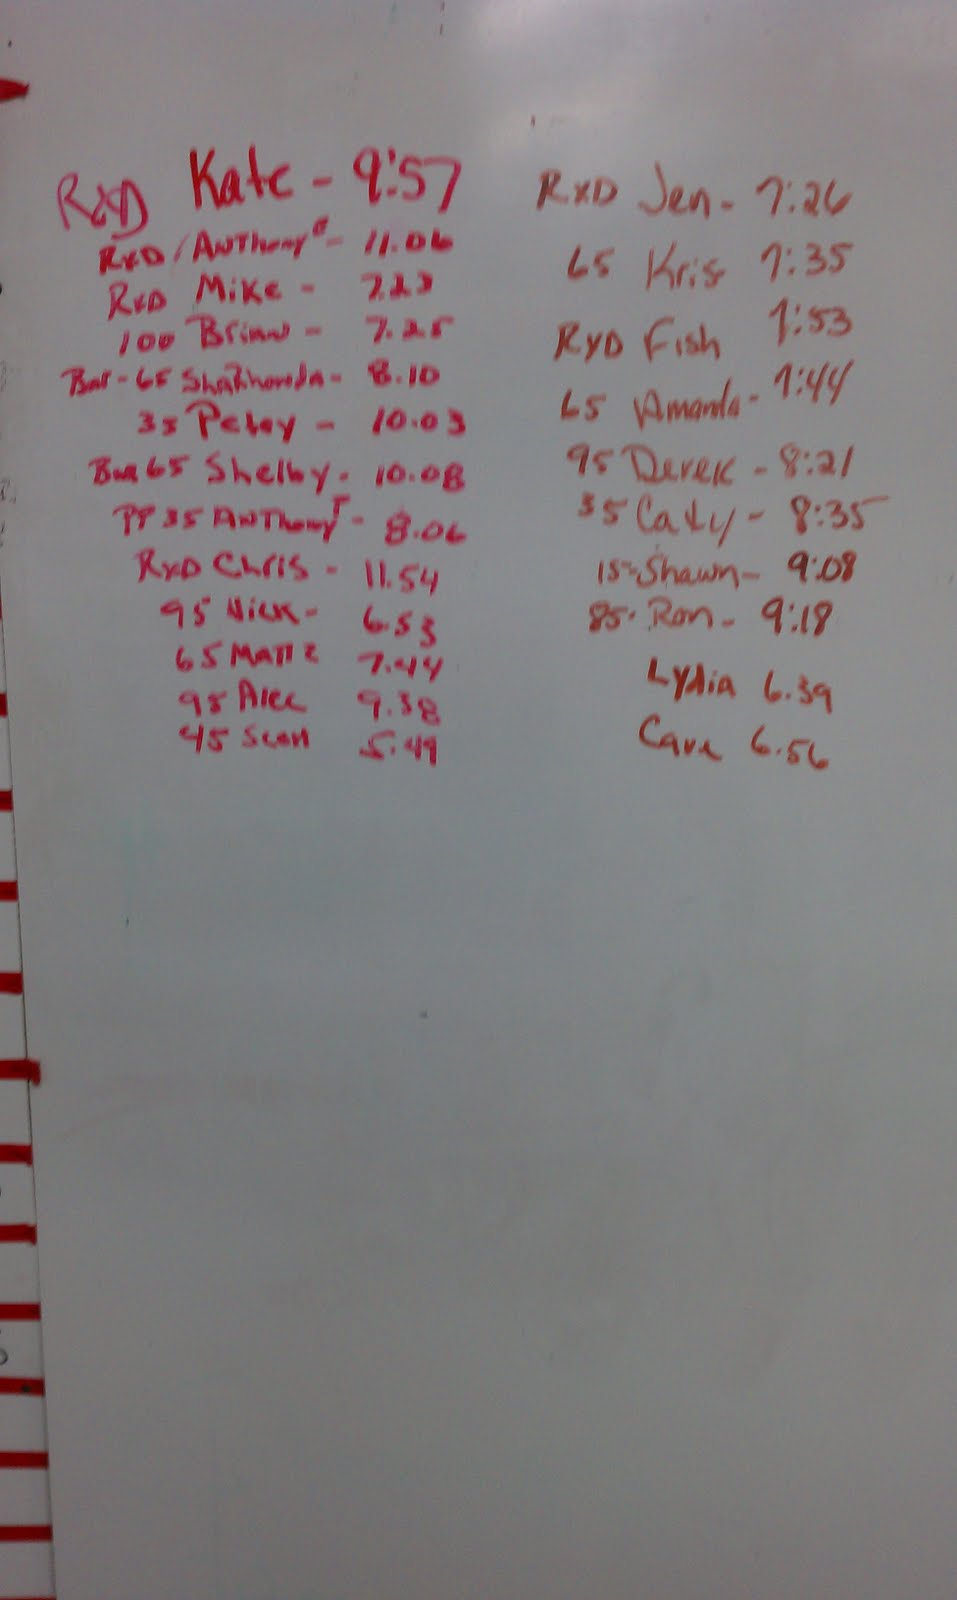 RXD Kate - 9:57
RXD / Anthony - 11.06
RXD Mike - 7.23
100 Brian - 7.25
Bar-65 - 8.10
35 Petey - 10.03
65 Shelby - 10.08
PP 35 Anthony T - 8.06
RXD Chris - 11.54
95 Nick - 6.53
65 Matt 7.44
95 Alec 9.38
45 Scott 5.49
RXD Jen - 7:26
65 Kris 7:35
RXD Fish 7:53
65 Amanda - 7:44
95 Derek - 8:21
35 Caty - 8:35
15 - Shawn - 9:08
85 - Ron - 9:18
Lydia 6.39
6.56